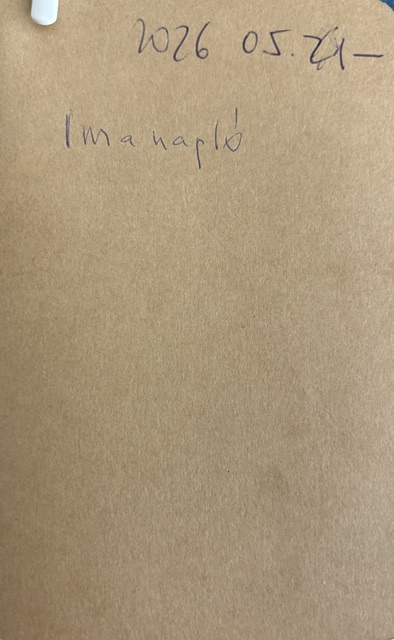 2026 05. 21–
Imanapló